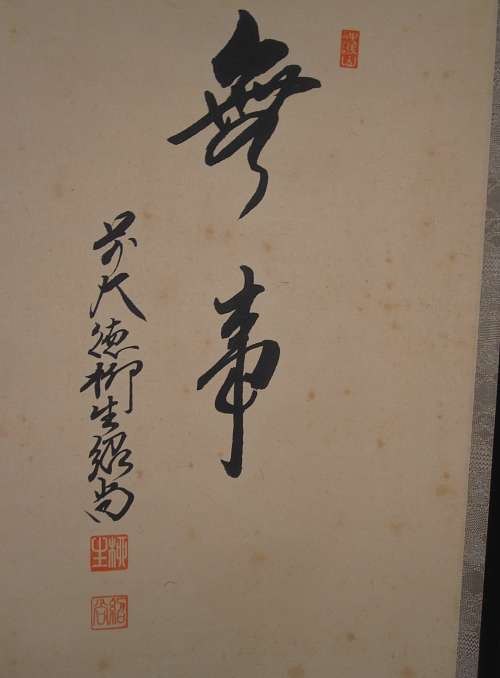 無事
前大徳柳生紹尚
柳生
紹尚